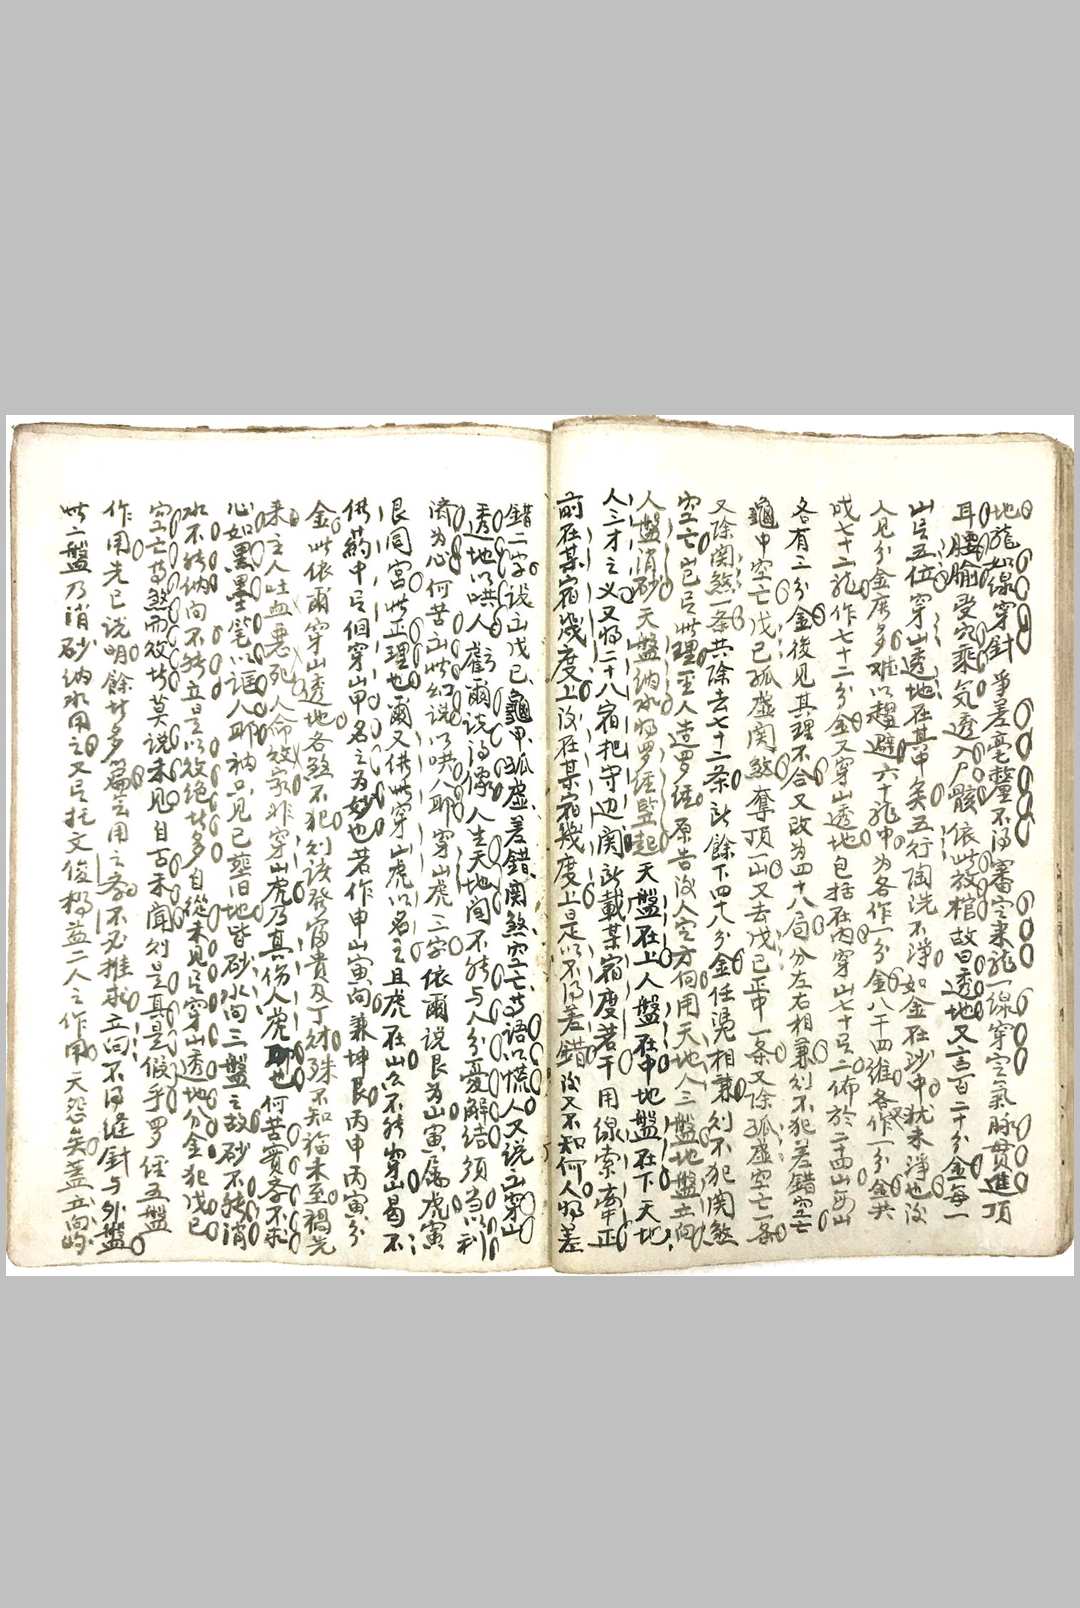 地龍如線穿針爭差毫釐不得審定来龍一線穿定氣脉貫進頂
耳腰腧受穴乘気透入尸骸依此放棺故曰透地又言百二十分金每一
山只五位穿山透地在其中矣五行陶洗不淨如金在沙中犹未淨也後
人見分金廣多难以趨避六十龍中为各作一分金八干四維各作一分金共
成七十二龍作七十二分金又穿山透地包括在内穿山七十只二佈於二十四山每山
各有三分金後見其理不合又改为四十八局分左右相兼则不犯差錯空亡
龜甲空亡戊己孤虛関煞奪頂一山又去戊己中一条又除孤虛空亡一条
又除関煞一条共除去七十二条所餘下四十八分金任憑相兼则不犯関煞
空亡岂只此理至人造罗经原告後人定方伺用天地人三盤地盤立向
人盤消砂天盤納水将罗经监起天盤在上人盤在中地盤在下天地
人三才之义又将二十八宿把守边関所載某宿度若干用線索牽正
前在某宿幾度上後在某宿幾度上是以不得差錯後又不知何人将差
錯二字設立戊己龜甲孤虛差錯関煞空亡等語以慌人又说立穿山
透地以哄人虧爾说得像人生天地间不能与人分憂解结須当以利
濟为心何苦立此幻说以哄人耶穿山虎三字依爾说艮为山寅属虎寅
艮同宮此正理也爾又供此穿山虎以名之且虎在山公不能穿山曷不
供药中只但穿山甲名之为妙也若作申山寅向兼坤艮丙申丙寅分
金此依爾穿山透地各煞不犯则该發富貴及丁财殊不知福未至禍先
来主人吐血悪死人命败家非穿山虎乃真伤人虎耶也何苦實实不求
心如黑墨笔以誣人耶衲只见已塟旧地皆砂水向三盤之故砂不能消
水不能纳向不能立是以敗绝此多自從未见只穿山透地分金犯戊己
空亡等煞而敗此莫说未见自古未闻则是真是假乎罗经五盤
作用先已说明餘此多篇無用之字不必推求立向不得缝針与外盤
此二盤乃消砂納水用之又只托文俊楊益二人之作用天怨矣盖立向的